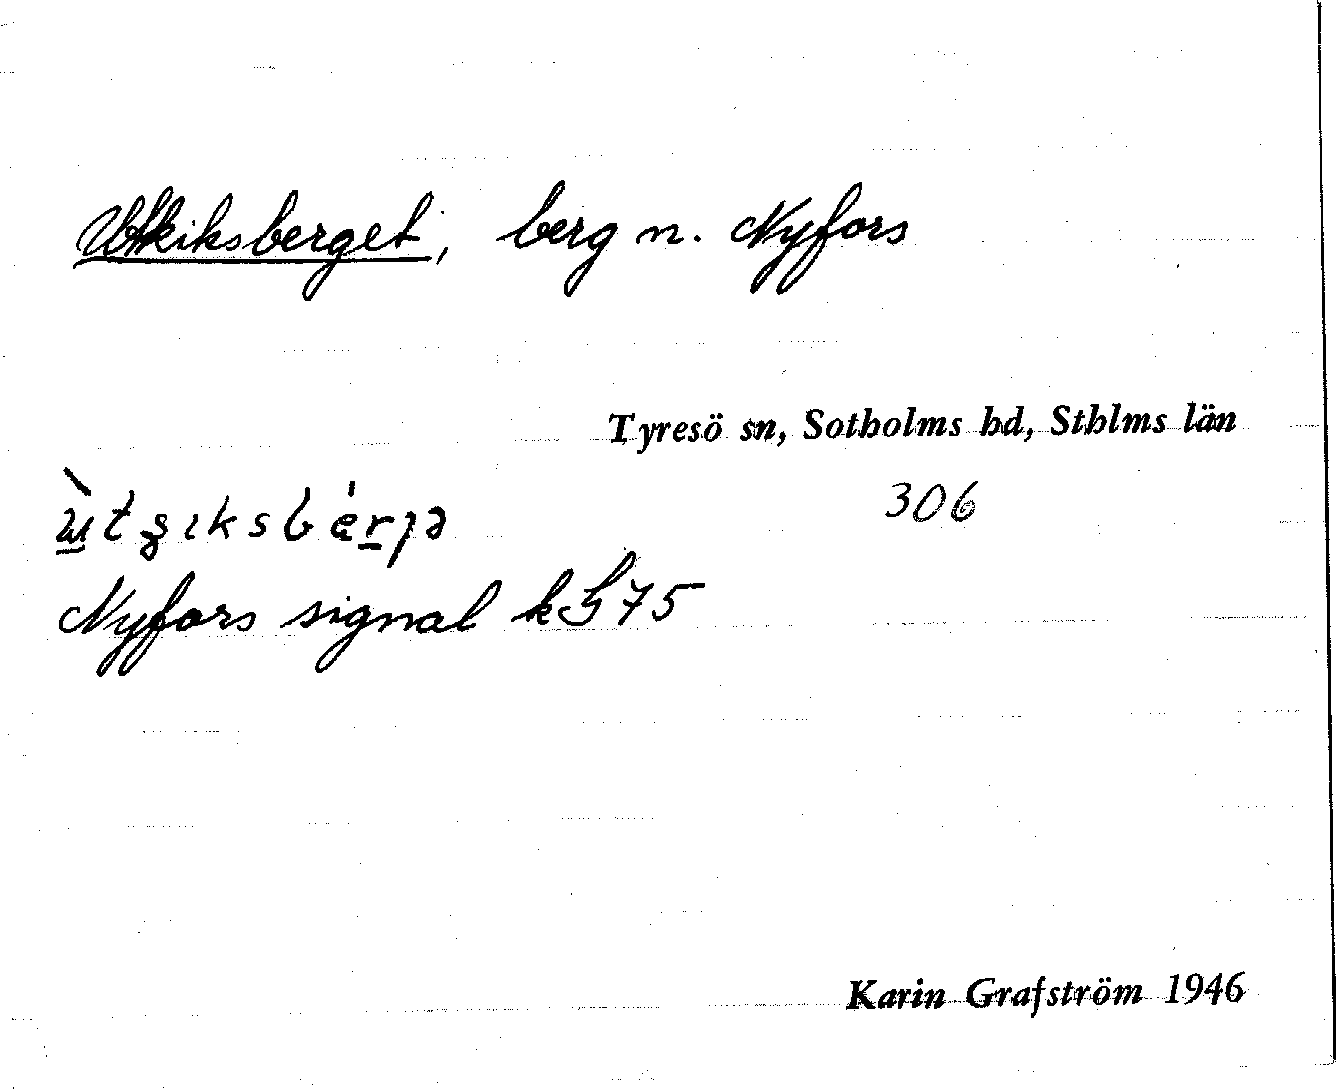 Utkiksberget, berg n. Nyfors
Tyresö sn, Sotholms hd, Sthlms län
306
Nyfors signal
Karin Grafström 1946